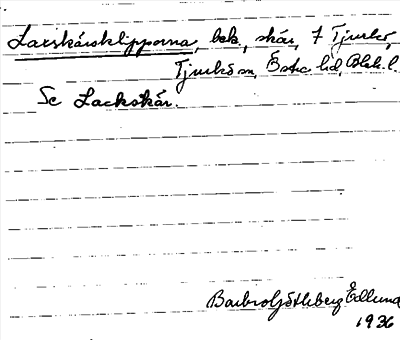 Laxskärsklipporna, bek., skär, 7 Tjurkö,
Tjurkö sn, Östra hd, Blek. l.
Se Lackskär.
Barbro Götlberg Edlund
1936